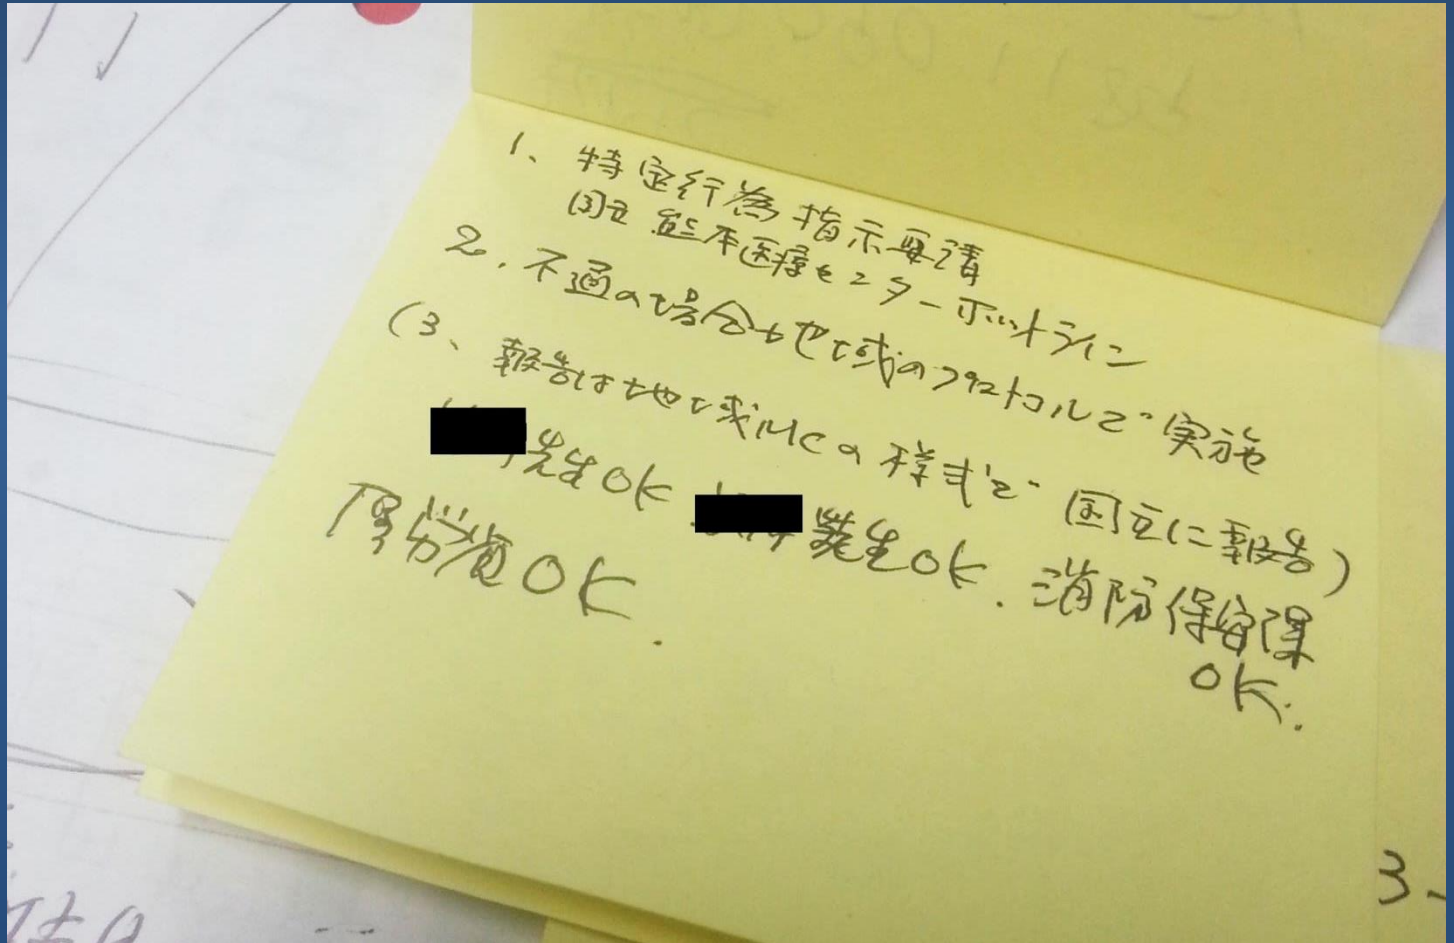 1、特定行為指示要請
国立熊本医療センターホットライン
2.不通の場合地域のプロトコルで実施
(3、報告は地域MCの様式で国立に報告)
先生OK 先生OK.消防保安課
OK.
厚労省OK.
3-